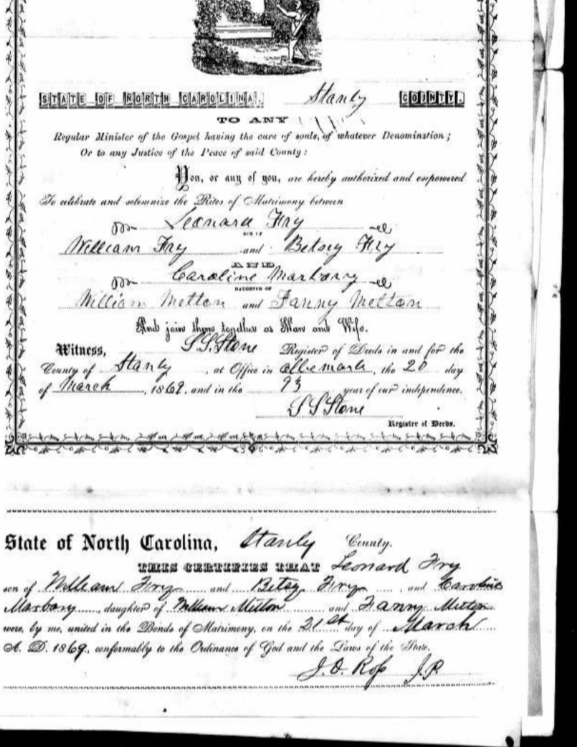 STATE OF NORTH CAROLINA, Stanly COUNTY.
TO ANY
Regular Minister of the Gospel having the care of souls, of whatever Denomination;
Or to any Justice of the Peace of said County:
You, or any of you, are hereby authorized and empowered
To celebrate and solemnize the Rites of Matrimony between
Leonard Fry
SON OF
William Fry and Betsy Fry
AND
Caroline Marbory
DAUGHTER OF
William Melton and Fanny Melton
And join them together as Man and Wife.
Witness, S S Stone Register of Deeds in and for the
County of Stanly, at Office in Albemarle, the 20 day
of March, 1869, and in the 93 year of our independence.
S S Stone
Register of Deeds.
State of North Carolina, Stanly County.
THIS CERTIFIES THAT Leonard Fry
son of William Fry and Betsy Fry, and Caroline
Marbory, daughter of William Milton and Fanny Mitton
were, by me, united in the Bonds of Matrimony, on the 21st day of March
A. D. 1869, conformably to the Ordinance of God and the Laws of the State.
J. O. Ross J.P.